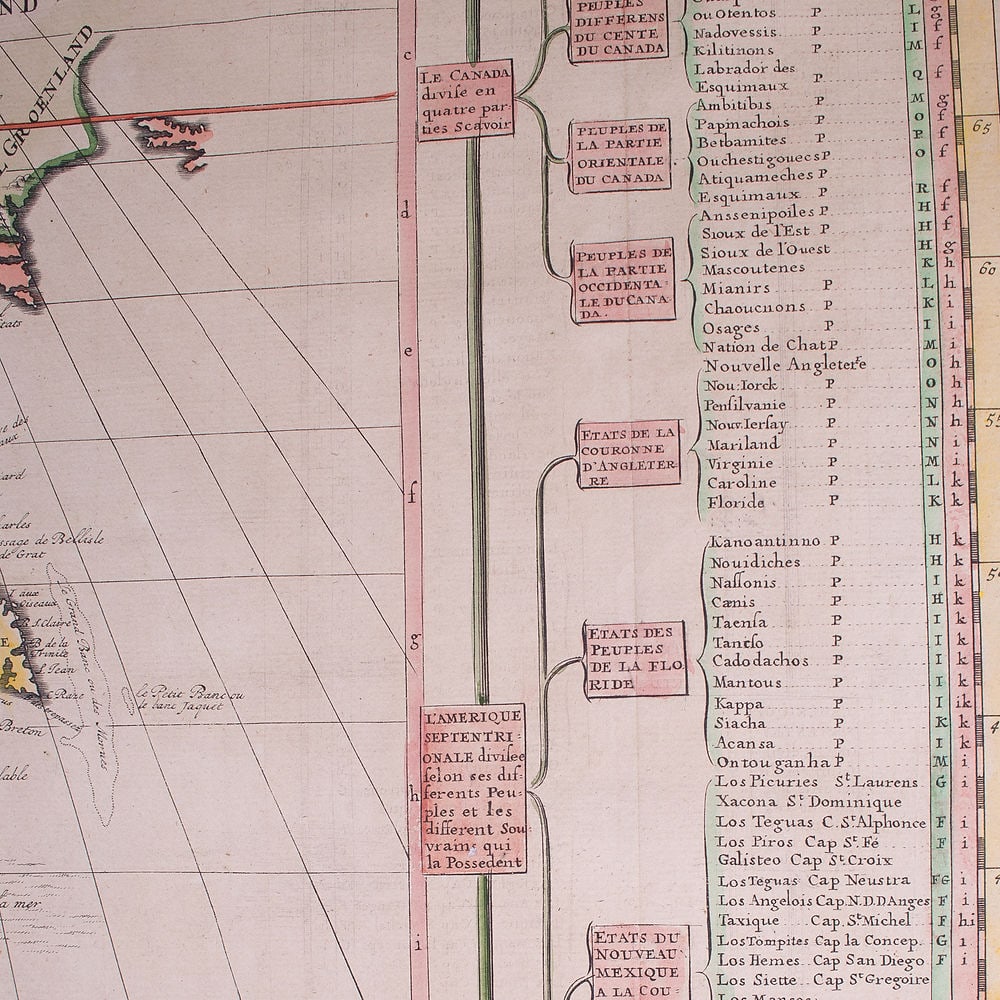 GROENLAND
Etats
Charles
Passage de Bellisle
de Grat
I. aux
Oiseaux
B. S. Claire
B de la
Trinite
S. Jean
C. Raze
Le Grand Banc ou des Morues
le Petit Banc ou
le banc Jaquet
Breton
Sable
la mer
c
d
e
f
g
h
i
LE CANADA
divise en
quatre par-
ties Scavoir
L'AMERIQUE
SEPTENTRI-
ONALE divisée
selon ses dif-
ferents Peu-
ples et les
different Sou-
vrains qui
la Possedent
PEUPLES
DIFFERENS
DU CENTE
DU CANADA
ou Otentos P L g
Nadovessis P I f
Kilitinons P M f
Labrador des
Esquimaux P Q f
Ambitibis P M g
PEUPLES DE
LA PARTIE
ORIENTALE
DU CANADA
Papinachois P O f
Betbamites P P f
Ouchestigouecs P O f
Atiquameches P
Esquimaux P R f
PEUPLES DE
LA PARTIE
OCCIDENTA-
LE DU CANA-
DA.
Anssenipoiles P H f
Sioux de l'Est P H f
Sioux de l'Ouest H g
Mascoutenes K h
Mianirs P L h
Chaoucnons P K i
Osages P I i
Nation de Chat P M i
ETATS DE LA
COURONNE
D'ANGLETER-
RE
Nouvelle Angleterre O h
Nou: Iorck P O h
Pensilvanie P N h
Nouv. Iersay P N h
Mariland P N i
Virginie P M i
Caroline P L k
Floride P K k
ETATS DES
PEUPLES
DE LA FLO
RIDE
Kanoantinno P H k
Nouidiches P H k
Nassonis P I k
Cænis P H k
Taensa P I k
Tantso P I k
Cadodachos P I k
Mantous P I k
Kappa P I ik
Siacha P K k
Acansa P I k
Ontouganha P M i
ETATS DU
NOUVEAU
MEXIQUE
A LA COU-
Los Picuries St. Laurens G i
Xacona St. Dominique
Los Teguas C. St. Alphonce F i
Los Piros Cap St. Fé F i
Galisteo Cap St. Croix
Los Teguas Cap Neustra FG i
Los Angelois Cap. N. D. D Anges F i
Taxique Cap. St. Michel F hi
Los Tompites Cap la Concep. G i
Los Hemes Cap San Diego F i
Los Siette Cap St. Gregoire
Los Mansos
65
60
55